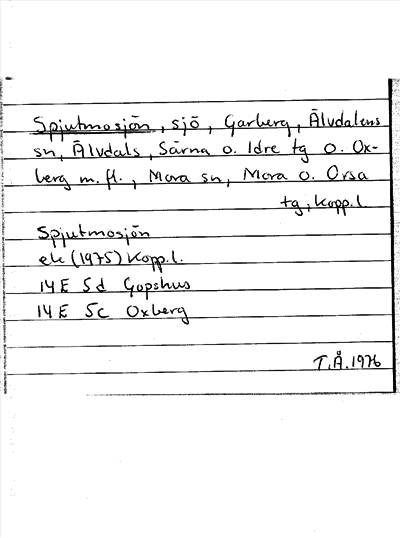 Spjutmosjön, sjö, Garberg, Älvdalens
sn, Älvdals, Särna o. Idre tg o. Ox-
berg m. fl., Mora sn, Mora o. Orsa
tg, Kopp.l.
Spjutmosjön
ek (1975) Kopp.l.
14 E 5d Gopshus
14 E 5c Oxberg
T.Å. 1976